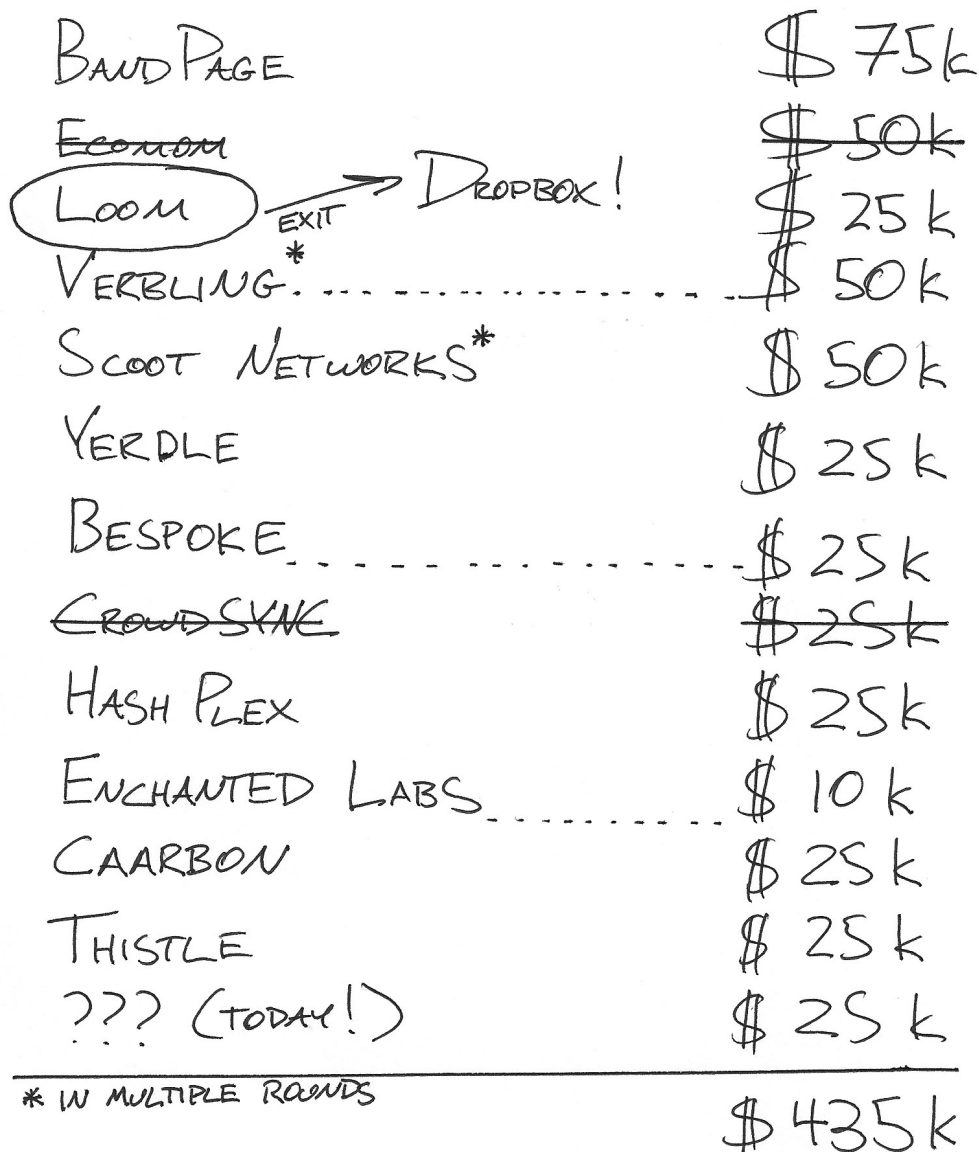 BANDPAGE $75k
ECOMOM $50k
LOOM EXIT DROPBOX! $25k
VERBLING* $50k
SCOOT NETWORKS* $50k
YERDLE $25k
BESPOKE $25k
CROWDSYNC $25k
HASH PLEX $25k
ENCHANTED LABS $10k
CAARBON $25k
THISTLE $25k
??? (TODAY!) $25k
* IN MULTIPLE ROUNDS
$435k